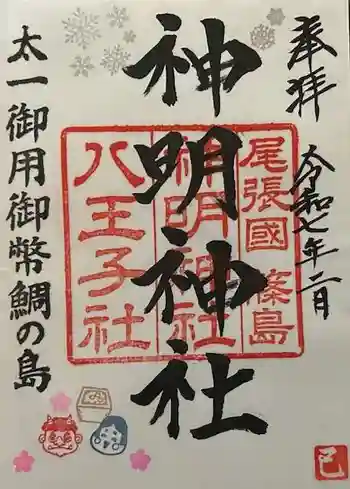 奉拝
令和七年二月
尾張國 篠島
神明神社
神明神社
八王子社
太一御用御幣鯛の島
己